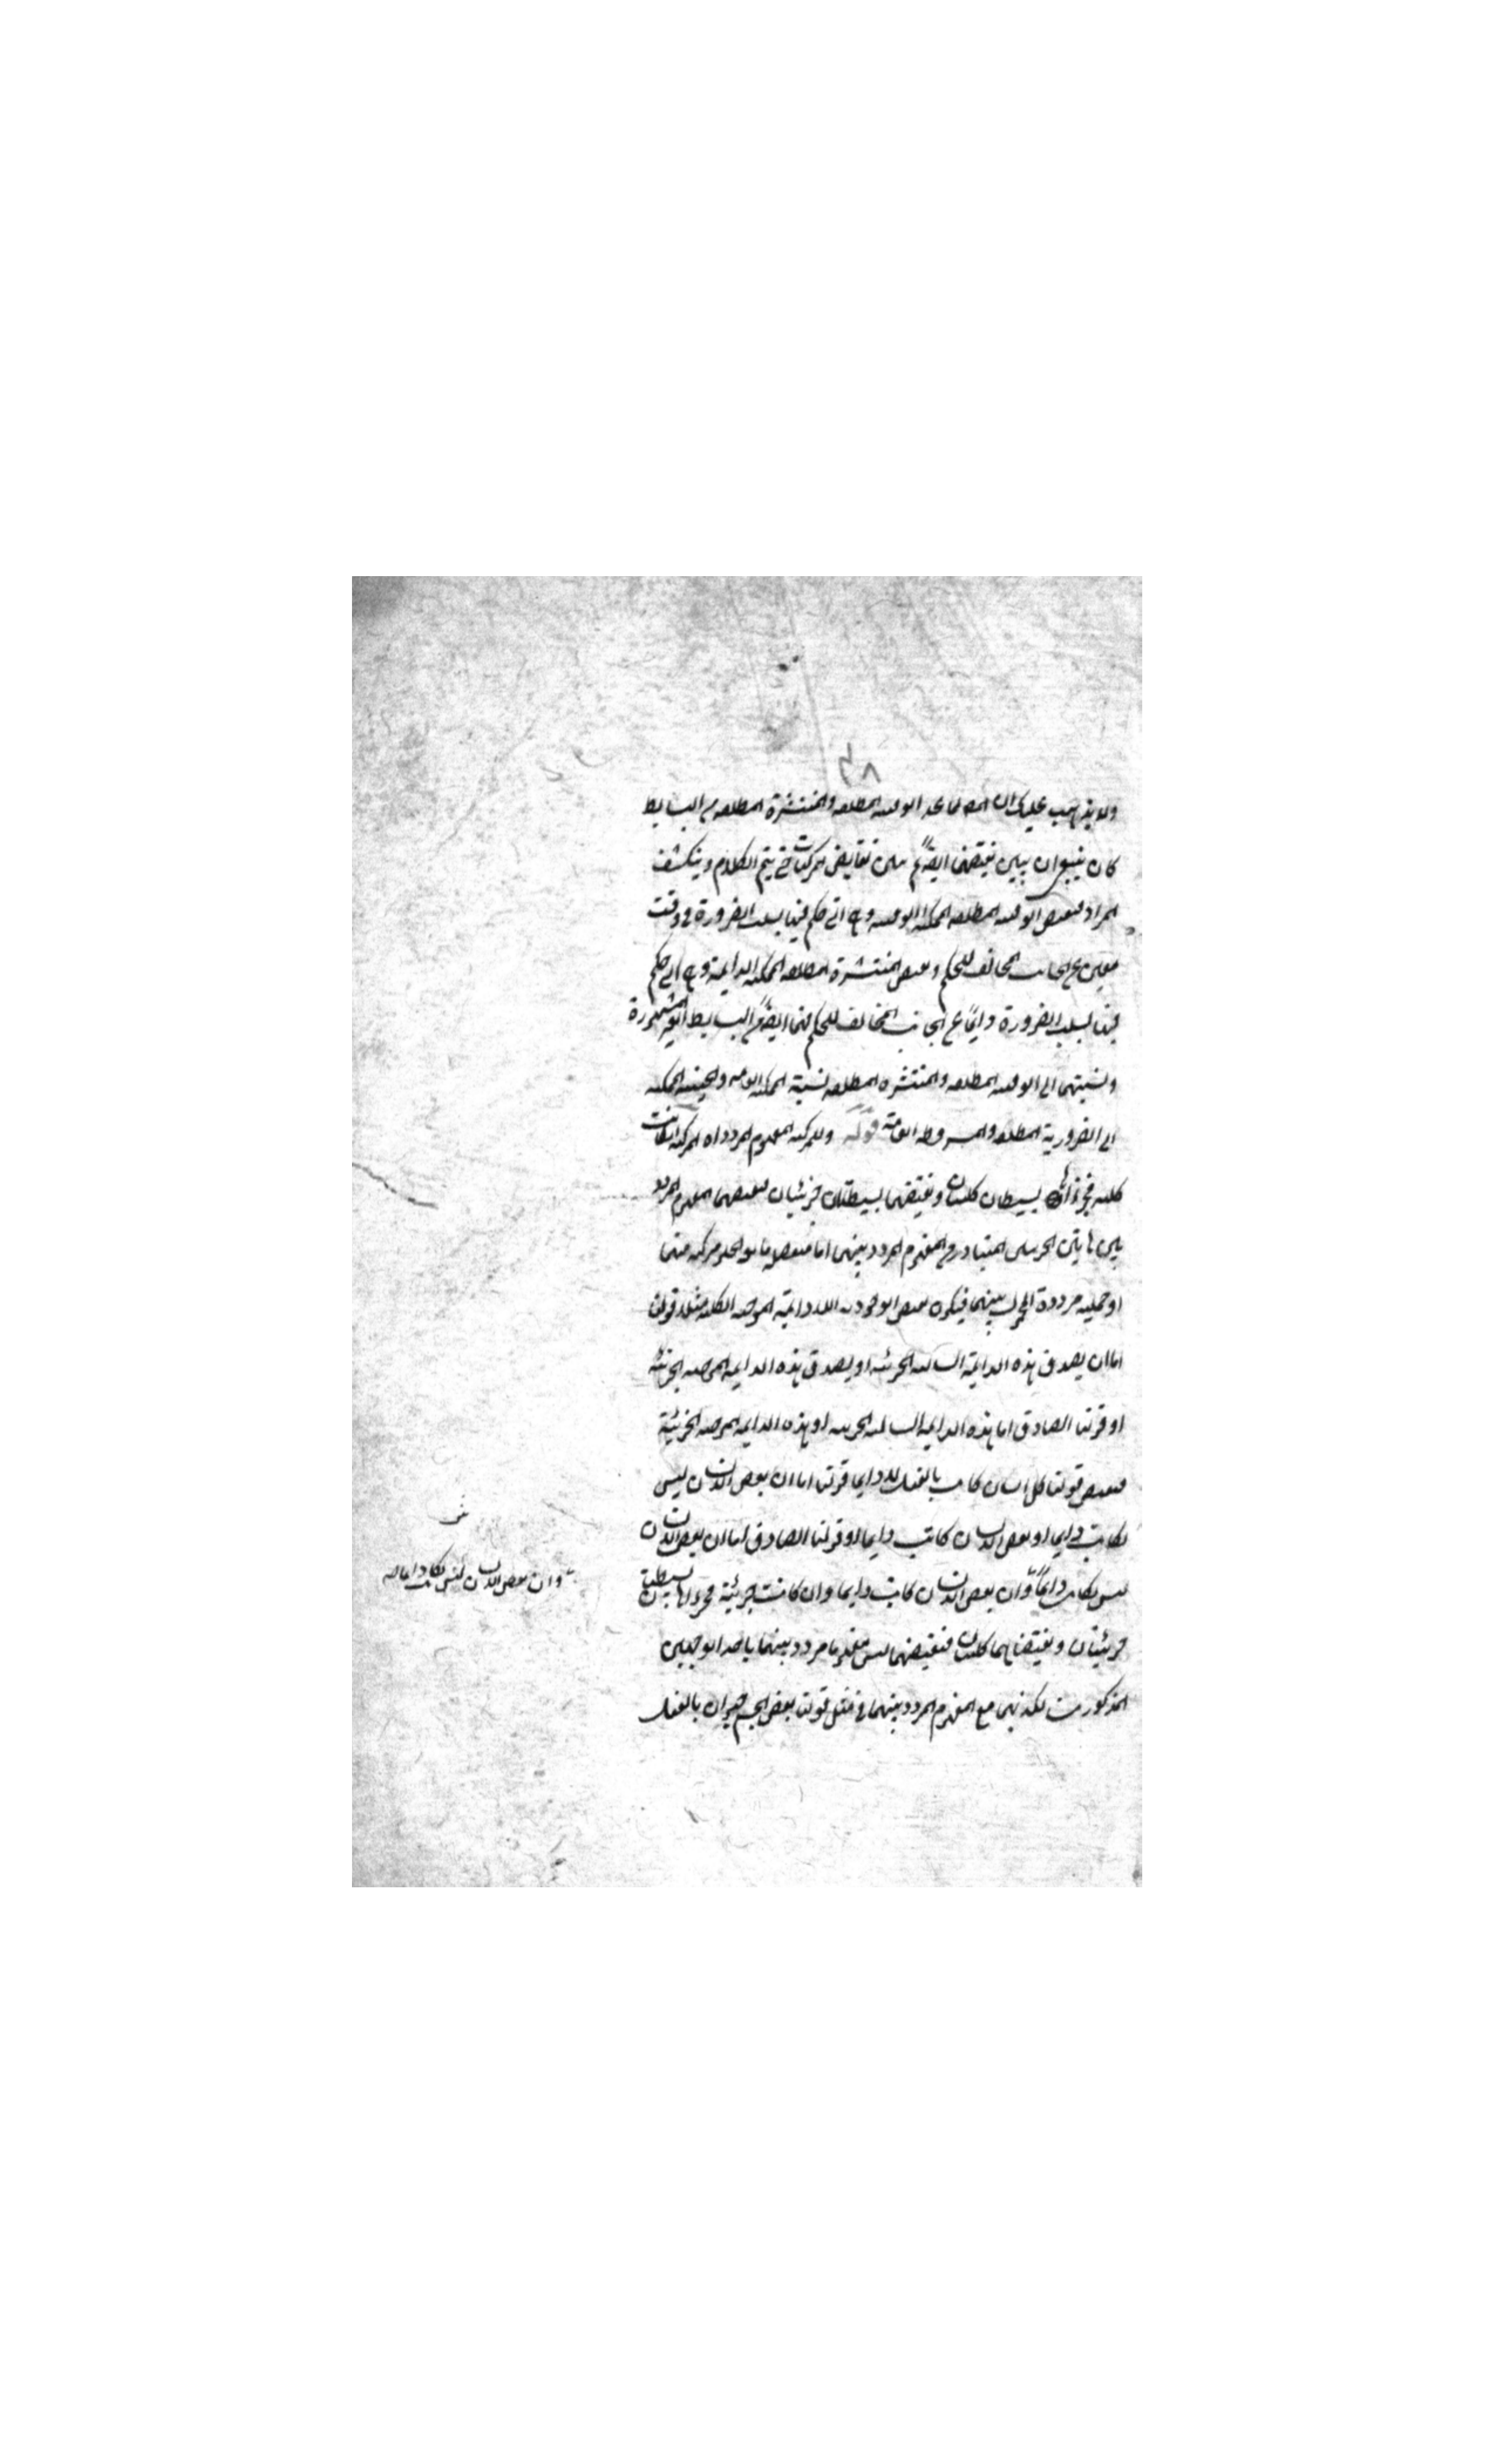 ٣٨
ولا يذهب عليك ان المص لما عد الوقتية المطلقة والمنتشرة المطلقة من البسايط
كان ينبغي ان يبين نقيضهما ايضا ثم يبين نقايض المركبات حتى يتم الكلام وينكشف
المراد فنقيض الوقتية المطلقة الممكنة الوقتية وهى التي حكم فيها بسلب الضرورة في وقت
معين عن الجانب المخالف للحكم ونقيض المنتشرة المطلقة الممكنة الدايمة وهى التي حكم
فيها بسلب الضرورة دايما عن الجانب المخالف للحكم فهما ايضا من البسايط الغير المشهورة
ونسبتهما الى الوقتية المطلقة والمنتشرة المطلقة نسبة الممكنة العامة والحينية الممكنة
الى الضرورية المطلقة والمشروطة العامة قوله وللمركبة المفهوم المردد اه المركبة ان كانت
كلية فجزءاها بسيطتان كليتان ونقيضهما بسيطتان جزئيتان فنقيضهما المفهوم المردد
بين هاتين الجزئيتين المتبادر من المفهوم المردد بينهما اما منفصلة مانعة الخلو مركبة منهما
او حملية مرددة المحمول بينهما فيكون نقيض الوجودية اللادايمة الموجبة الكلية مثلا قولنا
اما ان يصدق هذه الدايمة السالبة الجزئية او يصدق هذه الدايمة الموجبة الجزئية
او قولنا الصادق اما هذه الدايمة السالبة الجزئية او هذه الدايمة الموجبة الجزئية
فنقيض قولنا كل انسان كاتب بالفعل لا دايما قولنا اما ان بعض الانسان ليس
بكاتب دايما او بعض الانسان كاتب دايما او قولنا الصادق اما ان بعض الانسان
ليس بكاتب دايما وان بعض الانسان كاتب دايما وان كانت جزئية فجزءاها بسيطتان
جزئيتان ونقيضاهما كليتان فنقيضهما ليس مفهوما مرددا بينهما باحد الوجهين
المذكورين لكذبهما مع المفهوم المردد بينهما في مثل قولنا بعض الجسم حيوان بالفعل
وان بعض الانسان ليس بكاتب دايما